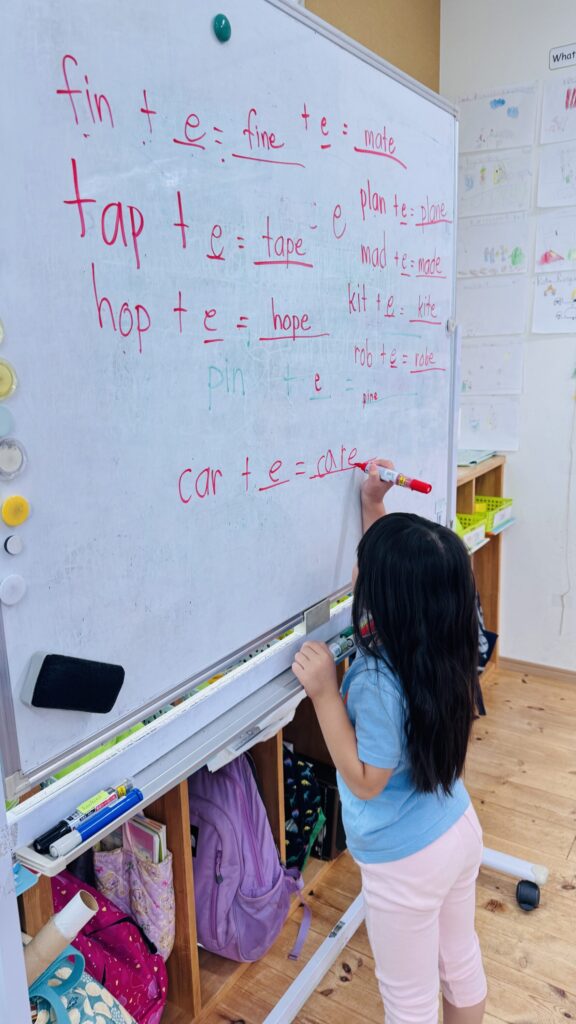 What
fin + e = fine
+ e = mate
tap + e = tape
e
plan + e = plane
mad + e = made
hop + e = hope
kit + e = kite
rob + e = robe
pin + e = pine
car + e = care